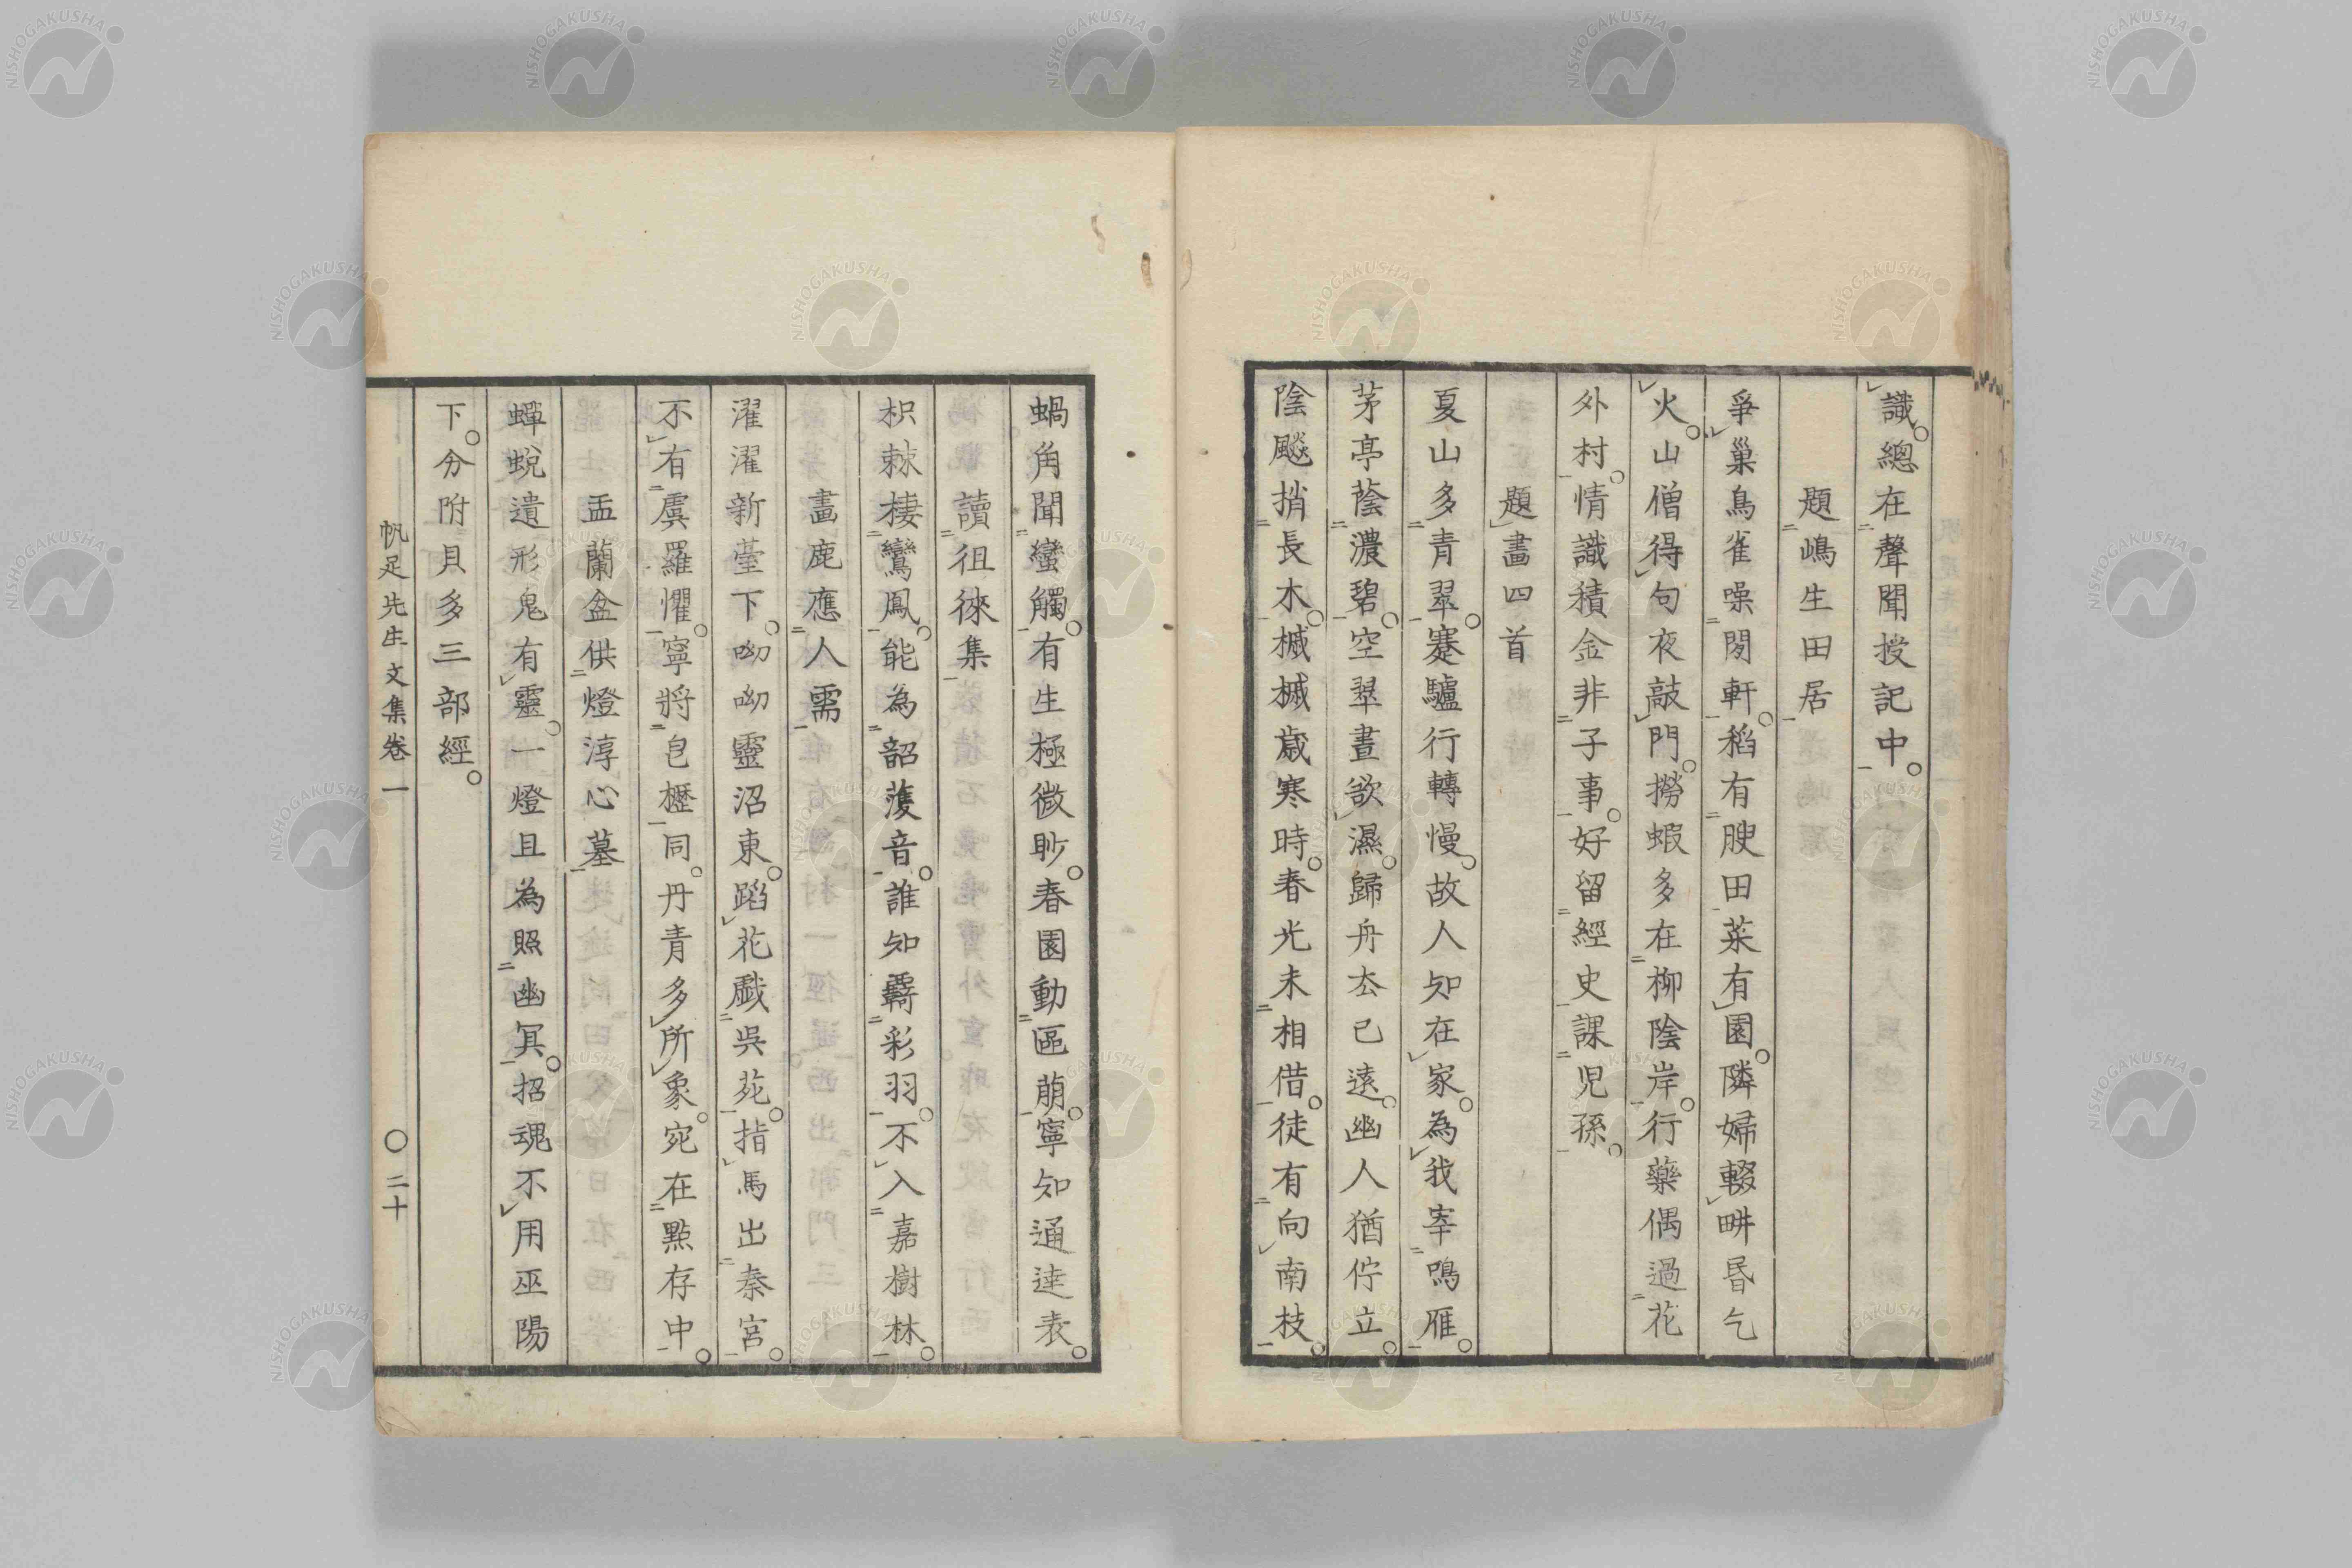 識。總在聲聞授記中。
題嶋生田居
爭巢鳥雀噪閒軒。稻有腴田菜有園。隣婦輟畊昏乞
火。山僧得句夜敲門。撈蝦多在柳陰岸。行藥偶過花
外村。情識積金非子事。好留經史課児孫。
題畫四首
夏山多青翠。蹇驢行轉慢。故人知在家。為我宰鳴雁。
茅亭蔭濃碧。空翠晝欲濕。歸舟去已遠。幽人猶佇立。
陰飈捎長木。槭槭歲寒時。春光未相借。徒有向南枝。
蝸角聞蠻觸。有生極微眇。春園動區萌。寧知通逵表。
讀徂徠集
枳棘棲鸞鳳。能為韶濩音。誰知霱彩羽。不入嘉樹林。
畫鹿應人需
濯濯新薹下。呦呦靈沼東。蹈花戲吳苑。指馬出秦宮。
不有虞羅懼。寧將皀櫪同。丹青多所象。宛在點存中。
盂蘭盆供燈淳心墓
蟬蛻遺形鬼有靈。一燈且為照幽冥。招魂不用巫陽
下。分附貝多三部經。
帆足先生文集卷一 〇二十
NISHOGAKUSHA